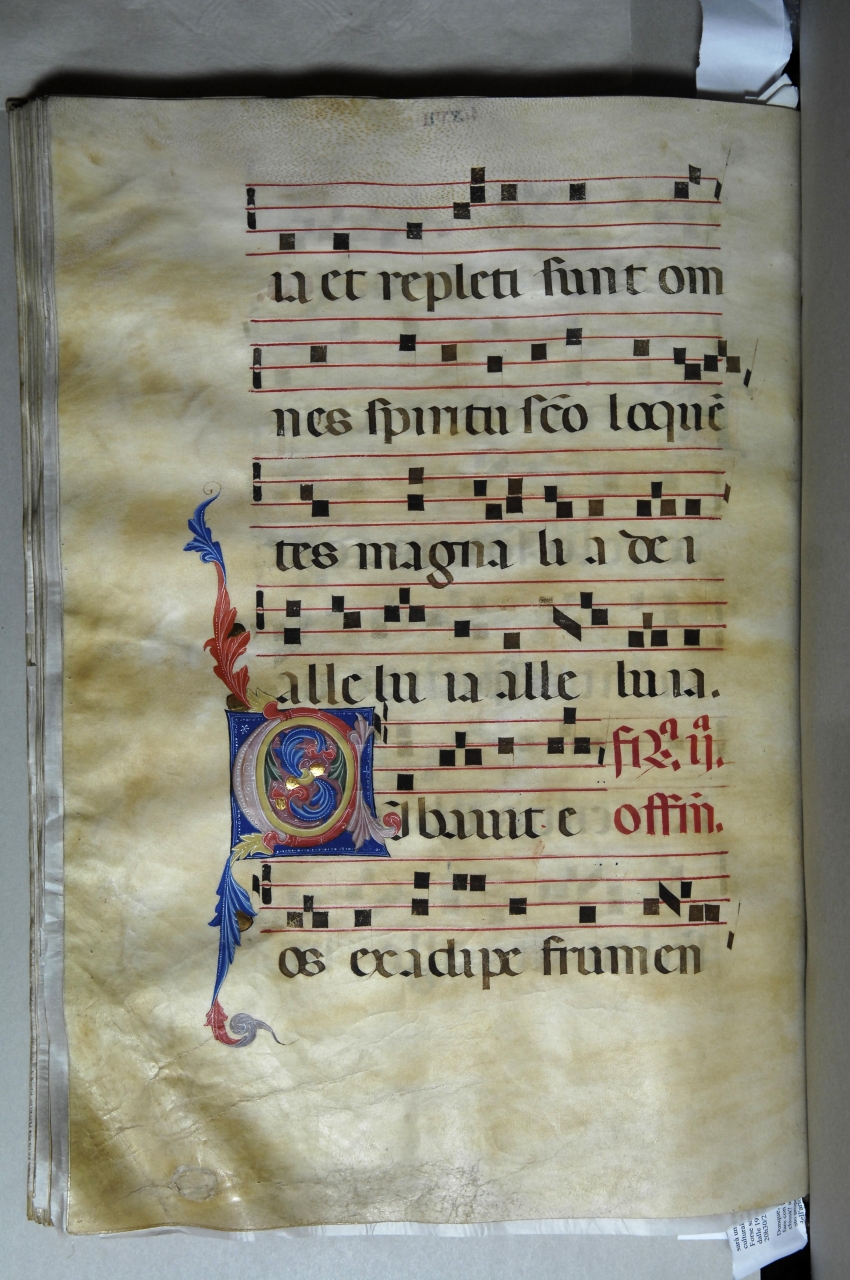 ia et repleti sunt om
nes spiritu sc̄o loquē
tes magna li a de i
alle lu ia alle luia.
fr̃. ij.
Cibauit e
offm̄.
os ex adipe frumen